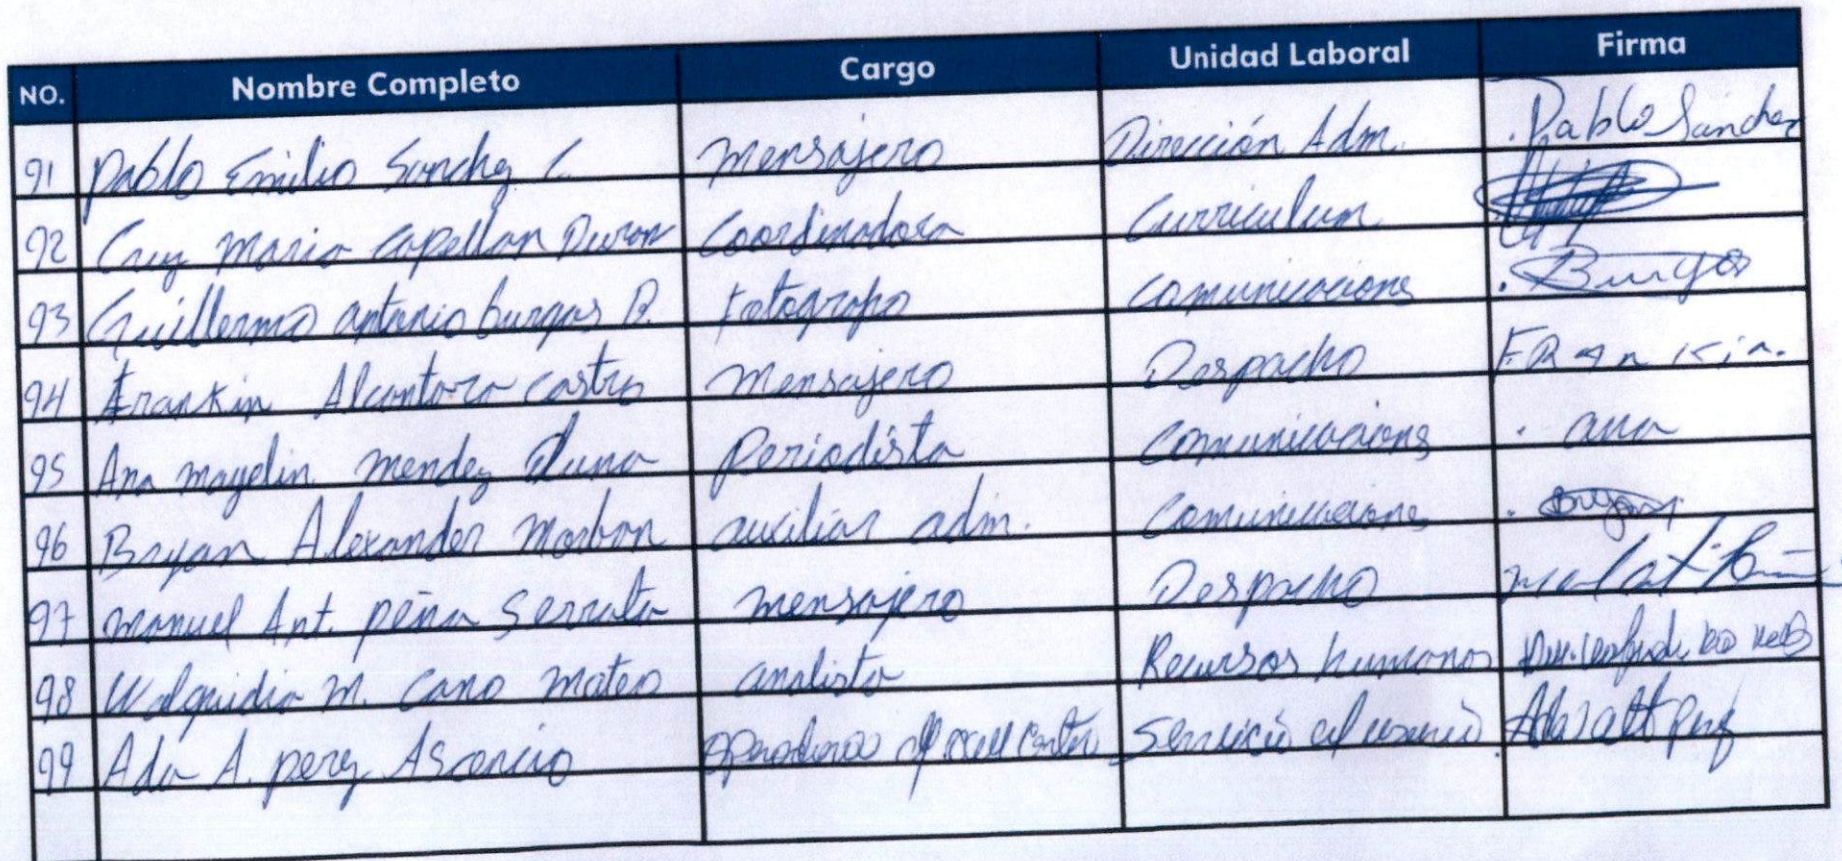 NO. Nombre Completo Cargo Unidad Laboral Firma
91 Pablo Emilio Sanchez C. mensajero Dirección Adm. Pablo Sánchez
92 Cruz Maria Capellan Duran Coordinadora Curriculum
93 Guillermo antonio burgos R. Fotografo comunicaciones Burgos
94 Frankin Alcantara castro mensajero Despacho FRankin.
95 Ana mayelin mendez periodista comunicaciones ana
96 Bryan Alexander Morbon auxiliar adm. comunicaciones Bryan
97 manuel Ant. peña Serrata mensajero Despacho
98 Walquidia M. Cano mateo analista Recursos humanos
99 Ada A. perez Ascencio call center Servicio al usuario